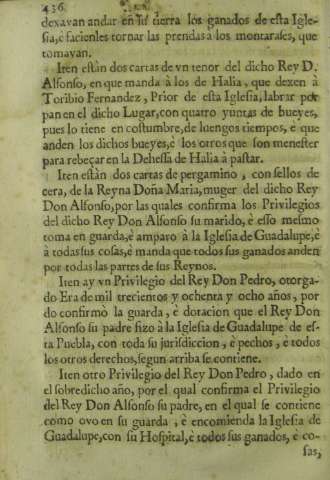 436.
dexavan andar en su tierra los ganados de esta Igle-
sia, è facienles tornar las prendas a los montarases, que
tomavan.
Iten están dos cartas de vn tenor del dicho Rey D.
Alfonso, en que manda à los de Halia, que dexen à
Toribio Fernandez, Prior de esta Iglesia, labrar por
pan en el dicho Lugar, con quatro yuntas de bueyes,
pues lo tiene en costumbre, de luengos tiempos, è que
anden los dichos bueyes, è los otros que son menester
para rebeçar en la Dehessa de Halia à pastar.
Iten están dos cartas de pergamino, con sellos de
cera, de la Reyna Doña Maria, muger del dicho Rey
Don Alfonso, por las quales confirma los Privilegios
del dicho Rey Don Alfonso su marido, è esso mesmo
toma en guarda, è amparo à la Iglesia de Guadalupe, è
à todas sus cosas, è manda que todos sus ganados anden
por todas las partes de sus Reynos.
Iten ay vn Privilegio del Rey Don Pedro, otorga-
do Era de mil trecientos y ochenta y ocho años, por
do confirmò la guarda, è dotacion que el Rey Don
Alfonso su padre fizo à la Iglesia de Guadalupe de es-
ta Puebla, con toda su jurisdiccion, è pechos, è todos
los otros derechos, segun arriba se contiene.
Iten otro Privilegio del Rey Don Pedro, dado en
el sobredicho año, por el qual confirma el Privilegio
del Rey Don Alfonso su padre, en el qual se contiene
como ovo en su guarda, è encomienda la Iglesia de
Guadalupe, con su Hospital, è todos sus ganados, è co-
sas,